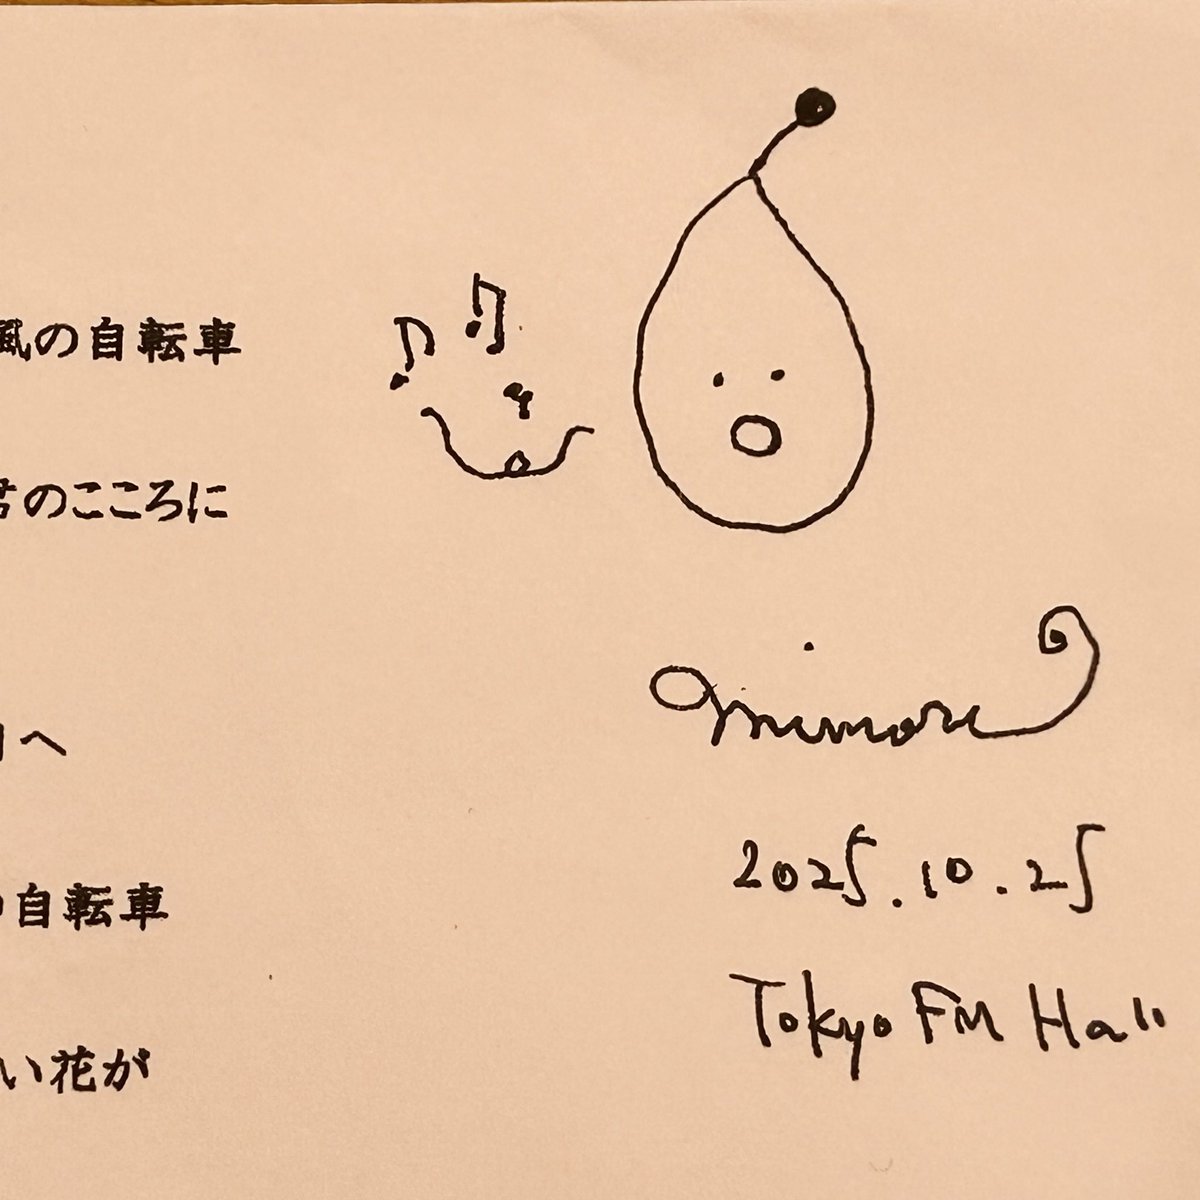 風の自転車
君のこころに
へ
の自転車
い花が
minori
2025.10.25
Tokyo FM Hall